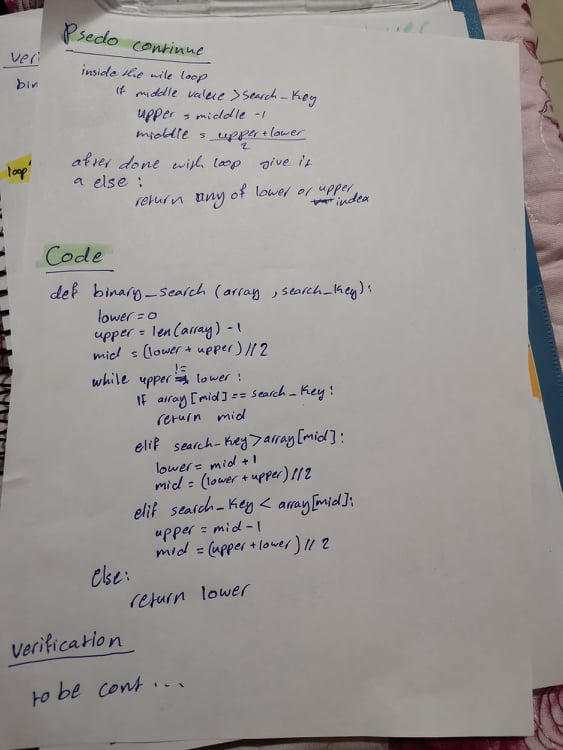 Psedo continue
inside the wile loop
If middle value > search_key
upper = middle -1
middle = upper + lower
2
after done with loop give it
a else :
return any of lower or upper
index
Code
def binary_search (array , search_key) :
lower = 0
upper = len(array) - 1
mid = (lower + upper) // 2
while upper != lower :
If array [mid] == search_key :
return mid
elif search_key > array[mid] :
lower = mid + 1
mid = (lower + upper) // 2
elif search_key < array[mid] :
upper = mid - 1
mid = (upper + lower) // 2
else :
return lower
Verification
to be cont ...
veri
bin
loop